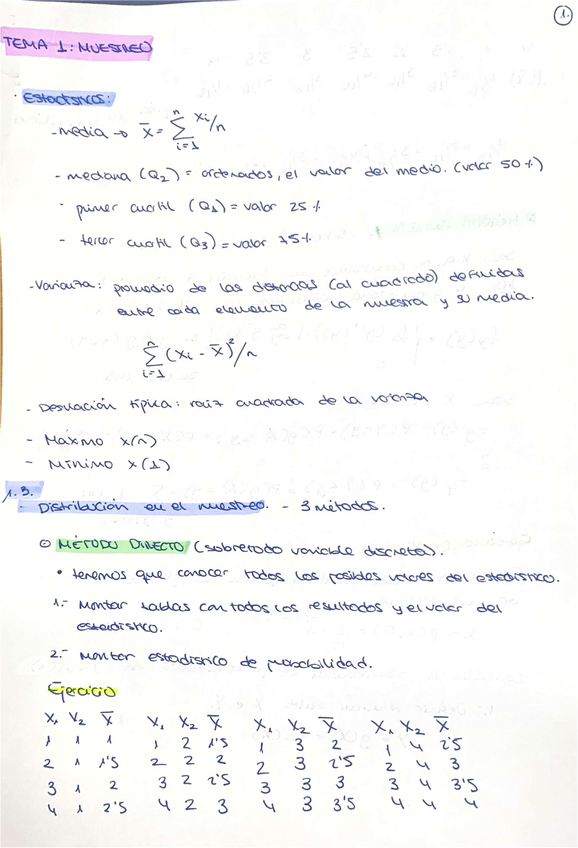 1.
TEMA 1: MUESTREO
· Estadísticos:
- media → X̄ = Σ xi/n
n
i=1
- mediana (Q2) = ordenados, el valor del medio. (valor 50 %)
· primer cuartil (Q1) = valor 25 %
- tercer cuartil (Q3) = valor 75 %
- Varianza: promedio de las distancias (al cuadrado) definidas
entre cada elemento de la muestra y su media.
n
Σ (xi - x̄)²/n
i=1
- Desviación típica: raíz cuadrada de la varianza
- Máximo x(n)
- Mínimo x(1)
1.3.
- Distribución en el muestreo. - 3 métodos.
⊙ MÉTODO DIRECTO (sobretodo variable discreta).
• tenemos que conocer todos los posibles valores del estadístico.
1.- Montar tablas con todos los resultados y el valor del
estadístico.
2.- Montar estadístico de probabilidad.
Ejercicio
X1 X2 X̄ X1 X2 X̄ X1 X2 X̄ X1 X2 X̄
1 1 1 1 2 1'5 1 3 2 1 4 2'5
2 1 1'5 2 2 2 2 3 2'5 2 4 3
3 1 2 3 2 2'5 3 3 3 3 4 3'5
4 1 2'5 4 2 3 4 3 3'5 4 4 4